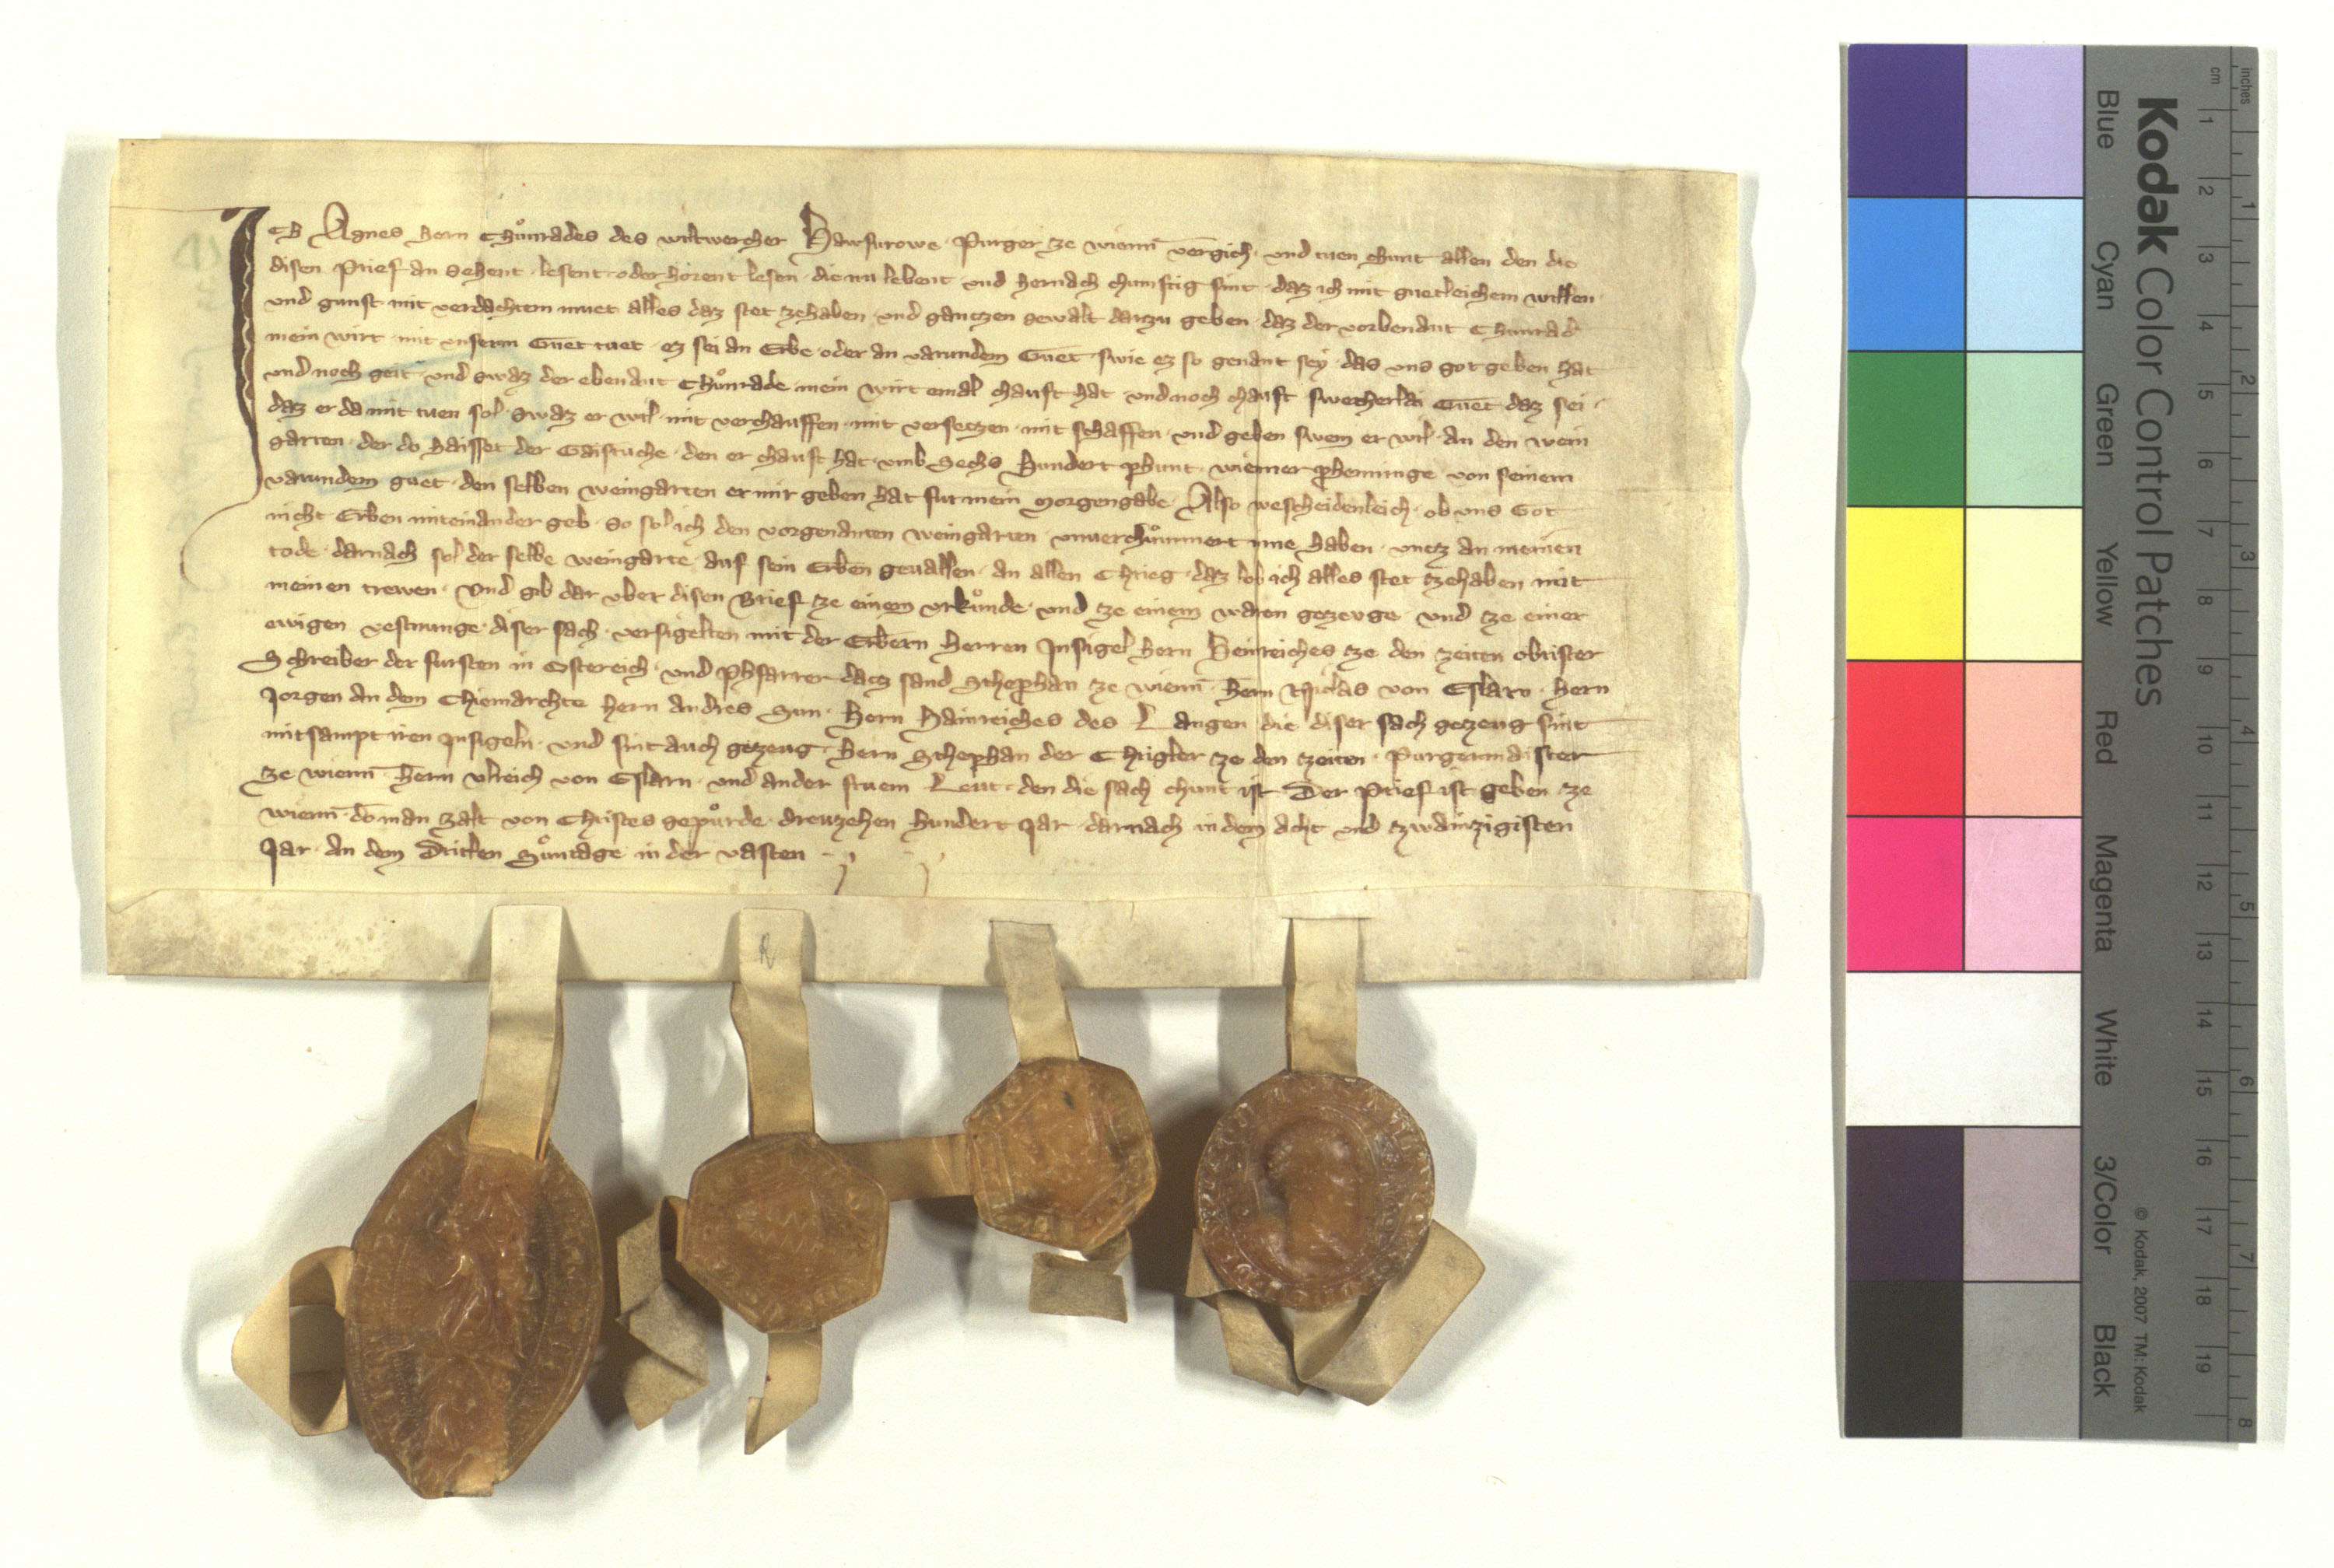 Ich Agnes hern Chůnrades des wiltwercher Hawsurowe Purger ze wienn vergich und tuen chunt allen den die
disen Prief an sehent lesent oder hörent lesen die nu lebent und hernach chumftig sint daz ich mit guetleichem willen
und gunst mit verdachtem muet alles daz stet ze haben und gantzen gewalt darzu geben daz der vorbenant Chunrad
mein wirt mit unserm Guet tuet ez sei an Erbe oder an varundem Guet swie ez so genant sey das uns got geben hat
und noch geit und swaz der ebenant Chůnrade mein wirt emal chauft hat und noch chauft swecherlai Guet daz sei
daz er da mit tuen sol swaz er wil mit verchauffen mit versetzen mit schaffen und geben swem er wil an den wein
garten der do haisset der Gaistuche den er chauft hat umb Sechs Hundert phunt wienner phenninge von seinem
varundem guet den selben weingarten er mir geben hat fur mein Morgengabe Also wescheidenleich ob uns Got
nicht Erben miteinander geb so sol ich den vorgenanten weingarten unverchůmmert inne haben untz an meinen
tode darnach sol der selbe weingarte auf sein Erben gevallen an allen Chrieg daz lob ich alles stet ze haben mit
meinen trewen Und gib dar uber disen Brief ze einem urkůnde und ze einem waren gezeuge und ze einer
ewigen vestnunge diser sach versigelten mit der Erbern Herren Insigel hern Heinreiches ze den zeiten obrister
Schreiber der fursten in Ostereich und Phfarrer datz sand Stephan ze wienn hern Niclas von Eslarn hern
Jorgen an dem Chienmarchte hern andres Sun hern Hainreiches des Langen die diser sach gezeug sint
mitsampt iren Insigeln und sint auch gezeug hern Stephan der Chrigler ze den zeiten Purgermaister
ze wienn hern Ulreich von Eslarn und ander frum Leut den die sach chunt ist Der Prief ist geben ze
wienn do man zalt von Christes gepůrde dreuzehen hundert Jar darnach in dem acht und zwainzigisten
Jar an dem Dritten Sůntage in der vasten
R
Kodak Color Control Patches
Blue Cyan Green Yellow Red Magenta White 3/Color Black
© Kodak, 2007 TM: Kodak
cm 1 2 3 4 5 6 7 8 9 10 11 12 13 14 15 16 17 18 19
inches 1 2 3 4 5 6 7 8